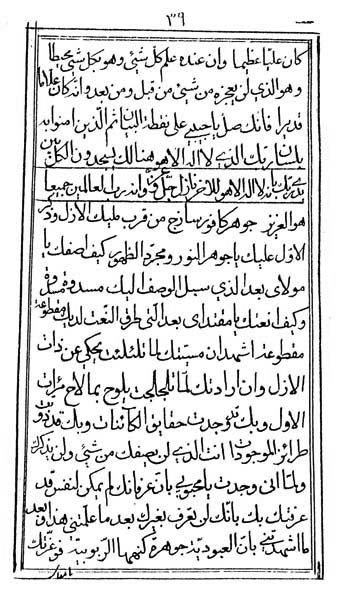 ٣٩
كان عليا عظيما وان عنده علم كل شئ وهو بكل شئ محيطا
وهو الذي لن يعجزه من شئ من قبل ومن بعد وانه كان علاما
قديرا فانك صل يا حبيبي على نقطة البيان ثم الذين امنوا به
بلسان ربك الذي لا اله الا هو هنالك يسجدون الكل بين
يدي ربك بانه لا اله الا هو رب العالمين جميعا
هو العزيز جوهر كافور ساذج من قرب مليك الازل وذكر
الاول عليك يا جوهر النور ومجرد الظهور كيف اصفك يا
مولاي بعد الذي سبل الوصف اليك مسدودة مسدودة
وكيف انعتك يا مقتداي بعد التي طرق النعت لديك مقطوعة
مقطوعة اشهد ان مشيتك لما تلئلئت يحكي عن ذات
الازل وان ارادتك لما تلجلجت يلوح بما لاح مرات
الاول وبك وجدت حقايق الكائنات وبك قد ذوتت
طرائز الموجودات انت الذي لن يصفك من شئ ولن يذكرك
ولما اني وجدت يا محبوبي بان عرفانك لم يمكن لنفس قد
عرفتك بك بانك لن تعرف بغيرك بعد ما علمتني هذا وبعد
ما اشهدتني بان العبودية جوهرة كنهها الربوبية قد عرفتك